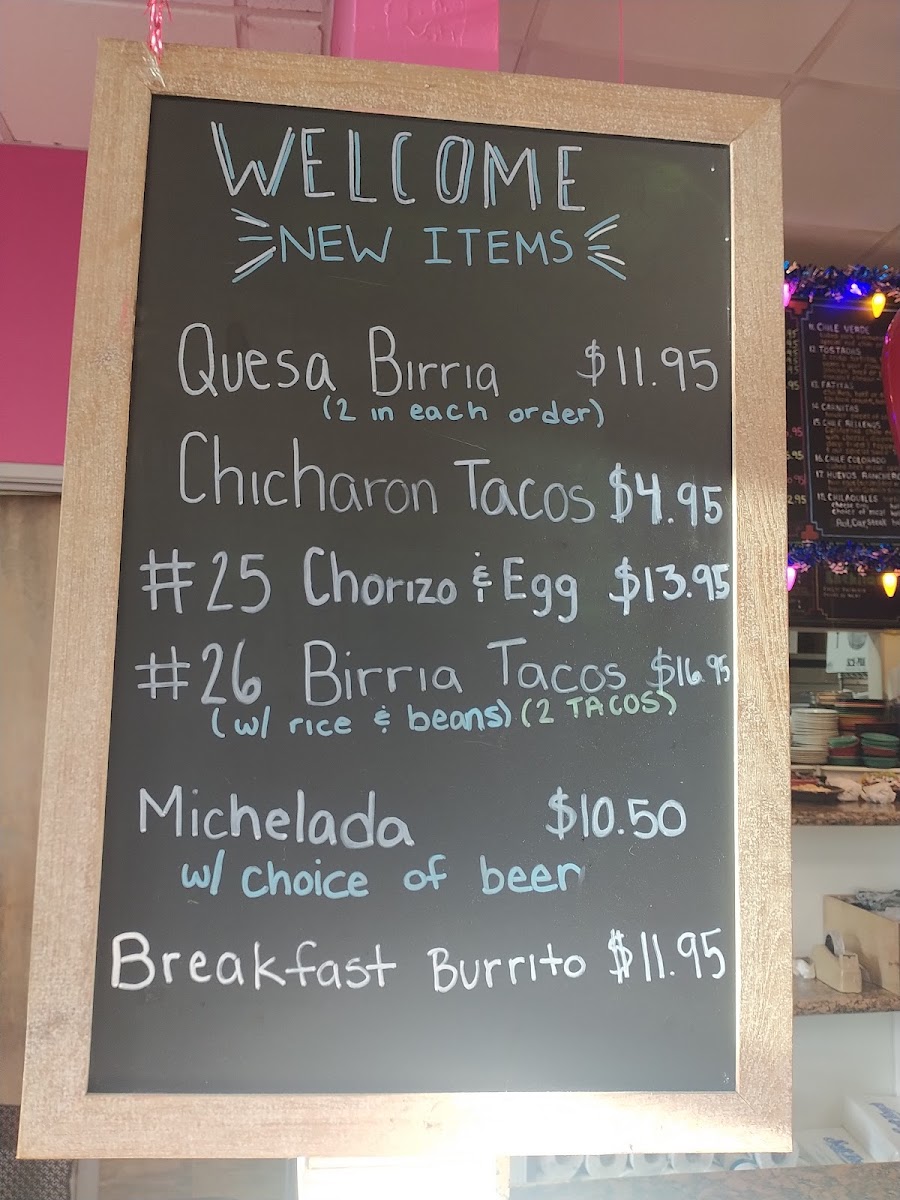 WELCOME
NEW ITEMS
Quesa Birria $11.95
(2 in each order)
Chicharon Tacos $4.95
#25 Chorizo & Egg $13.95
#26 Birria Tacos $16.95
(w/ rice & beans) (2 TACOS)
Michelada $10.50
w/ choice of beer
Breakfast Burrito $11.95
11. CHILE VERDE
12. TOSTADAS
13. FAJITAS
14. CARNITAS
15. CHILE RELLENOS
16. CHILE COLORADO
17. HUEVOS RANCHERO
18. CHILAQUILES
choice of meat